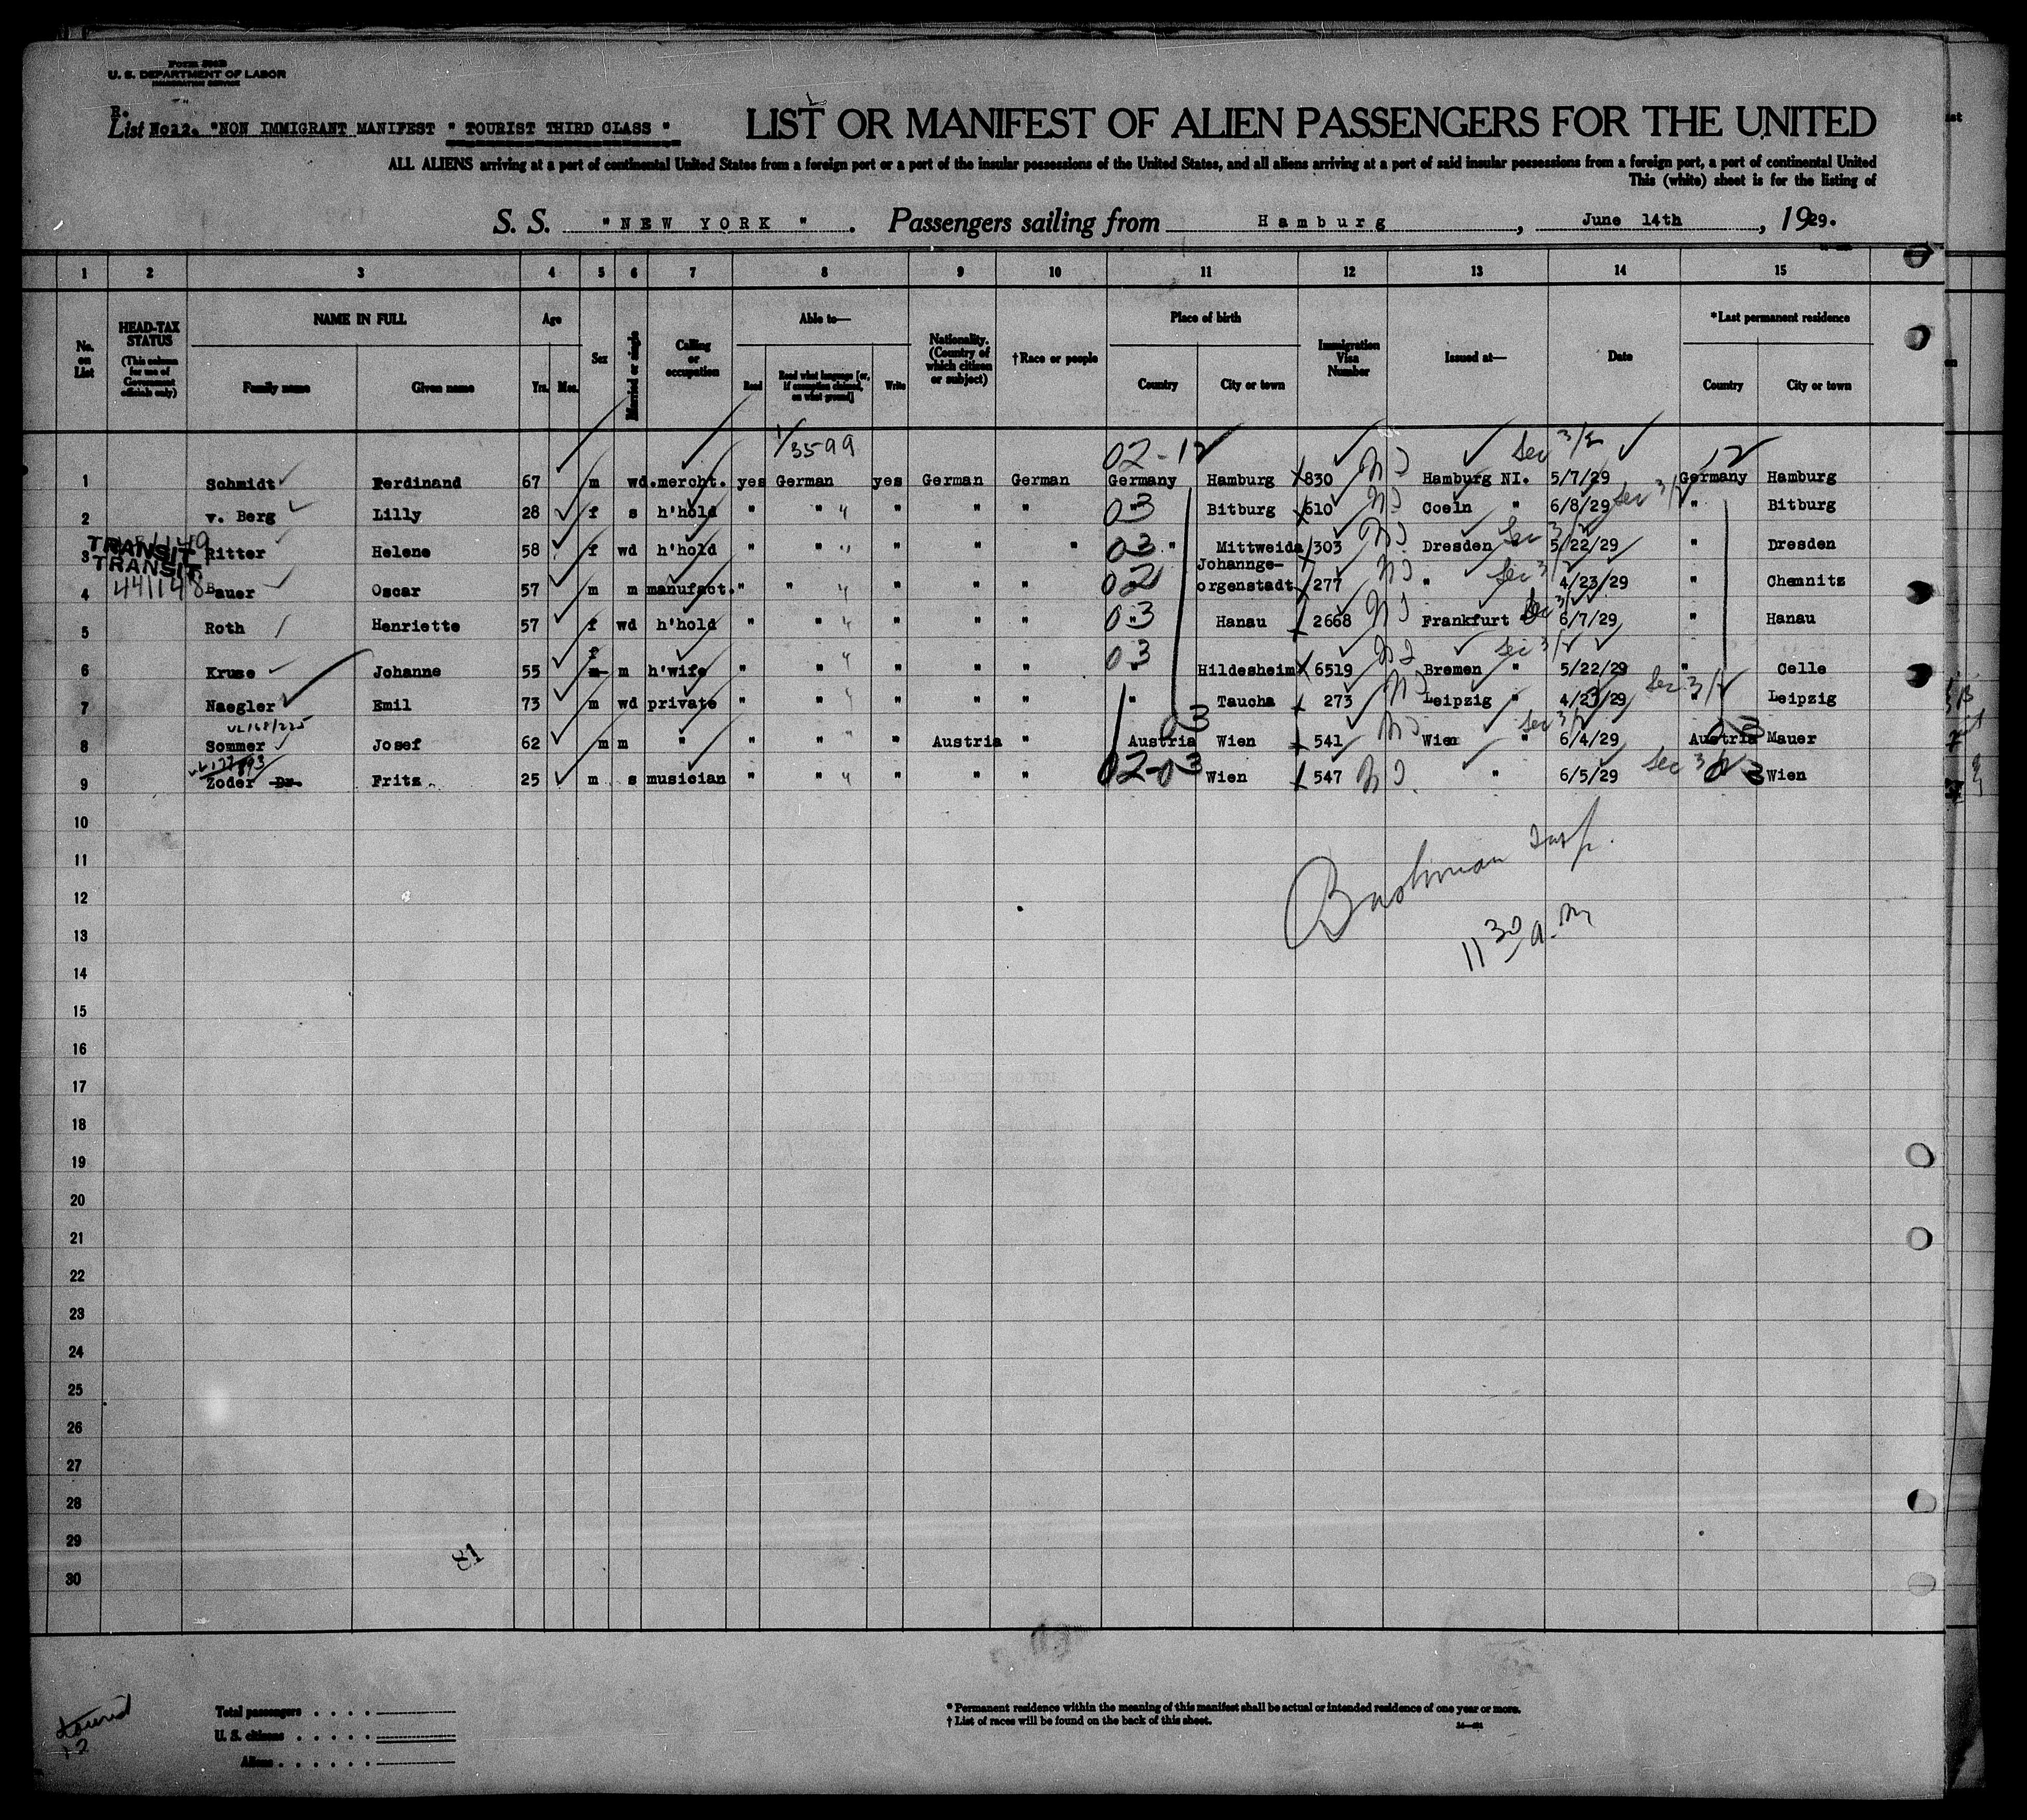 Form 500B
U. S. DEPARTMENT OF LABOR
IMMIGRATION SERVICE
R.
List No12. "NON IMMIGRANT MANIFEST " TOURIST THIRD CLASS "
LIST OR MANIFEST OF ALIEN PASSENGERS FOR THE UNITED
ALL ALIENS arriving at a port of continental United States from a foreign port or a port of the insular possessions of the United States, and all aliens arriving at a port of said insular possessions from a foreign port, a port of continental United
This (white) sheet is for the listing of
S. S. " NEW YORK " . Passengers sailing from Hamburg , June 14th , 1929.
1 2 3 4 5 6 7 8 9 10 11 12 13 14 15
No. on List
HEAD-TAX STATUS (This column for use of Government officials only)
NAME IN FULL Family name Given name
Age Yrs. Mos.
Sex
Married or single
Calling or occupation
Able to— Read Read what language [or, if exemption claimed, on what ground] Write
Nationality. (Country of which citizen or subject)
†Race or people
Place of birth Country City or town
Immigration Visa Number
Issued at—
Date
*Last permanent residence Country City or town
1/3599 02-12 Sec 3/2 12
1 Schmidt Ferdinand 67 m wd. mercht. yes German yes German German Germany Hamburg 830 Hamburg NI. 5/7/29 Germany Hamburg
2 v. Berg Lilly 28 f s h'hold " " " " " " 03 " Bitburg 610 Coeln " 6/8/29 Sec 3/2 " Bitburg
TRANSIT
3 Ritter Helene 58 f wd h'hold " " " " " " 03 " Mittweida 303 Dresden " Sec 3/2 5/22/29 " Dresden
TRANSIT
441148
4 Bauer Oscar 57 m m manufact. " " " " " " 02 " Johanngeorgenstadt 277 " Sec 3/2 4/23/29 " Chemnitz
5 Roth Henriette 57 f wd h'hold " " " " " " 03 " Hanau 2668 Frankfurt Sec 3/2 6/7/29 " Hanau
6 Kruse Johanne 55 f m m h'wife " " " " " " 03 " Hildesheim 6519 Bremen " Sec 3/2 5/22/29 " Celle
7 Naegler Emil 73 m wd private " " " " " " " Taucha 273 Leipzig " 4/23/29 Sec 3/2 " Leipzig
8 Sommer Josef 62 m m " " " " " Austria " 03 Austria Wien 541 Wien " Sec 3/2 6/4/29 Austria 03 Mauer
9 Zoder Dr. Fritz 25 m s musician " " " " " " 02-03 Wien 547 " 6/5/29 Sec 3/2 03 Wien
10
11
12
13
Bushman Insp.
11 30 a.m
14
15
16
17
18
19
20
21
22
23
24
25
26
27
28
29
30
81
Total passengers . . . .
U. S. citizens . . . . .
Aliens . . . . . .
* Permanent residence within the meaning of this manifest shall be actual or intended residence of one year or more.
† List of races will be found on the back of this sheet.
12